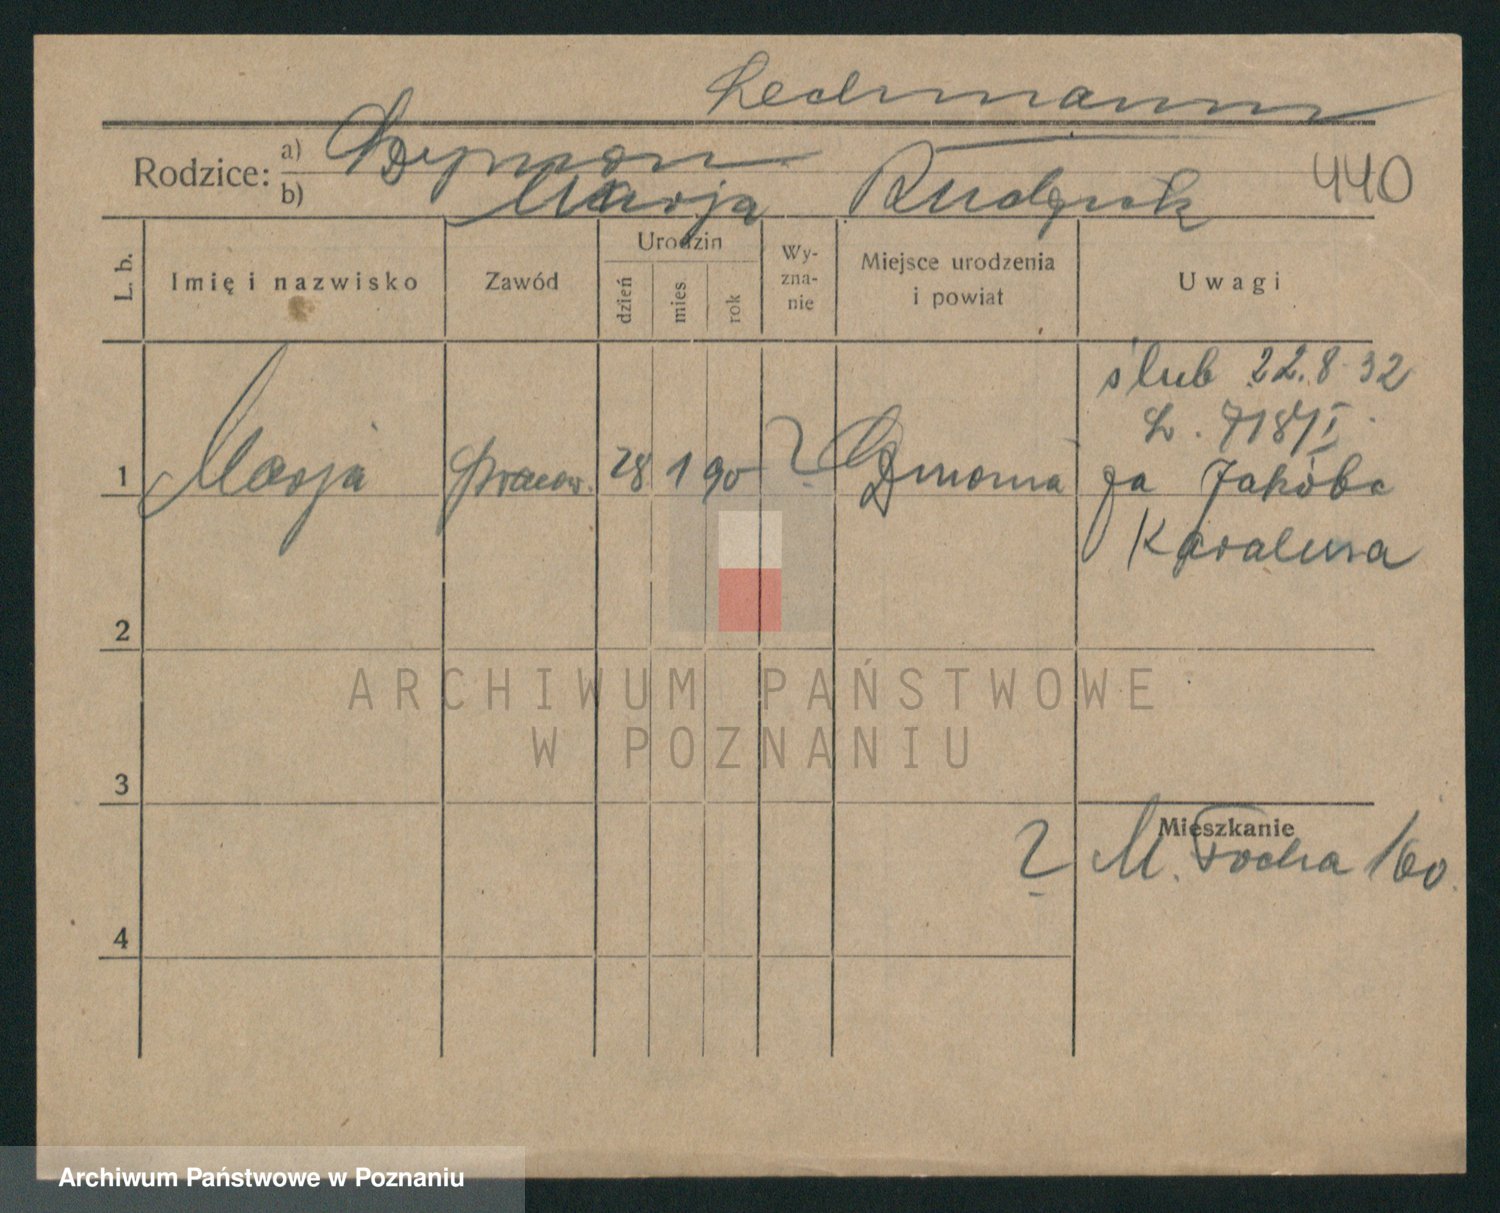 Lechmann
Rodzice: a) Szymon
b) Marja Rudzik
440
L. b. Imię i nazwisko Zawód Urodzin dzień mies. rok Wyznanie Miejsce urodzenia i powiat Uwagi
ślub 22.8.32
L. 718/I
1 Marja pracow. 28 1 90 ? za Jakóba
Karalusa
2
ARCHIWUM PAŃSTWOWE
W POZNANIU
3
Mieszkanie
? M. Focha 160.
4
Archiwum Państwowe w Poznaniu